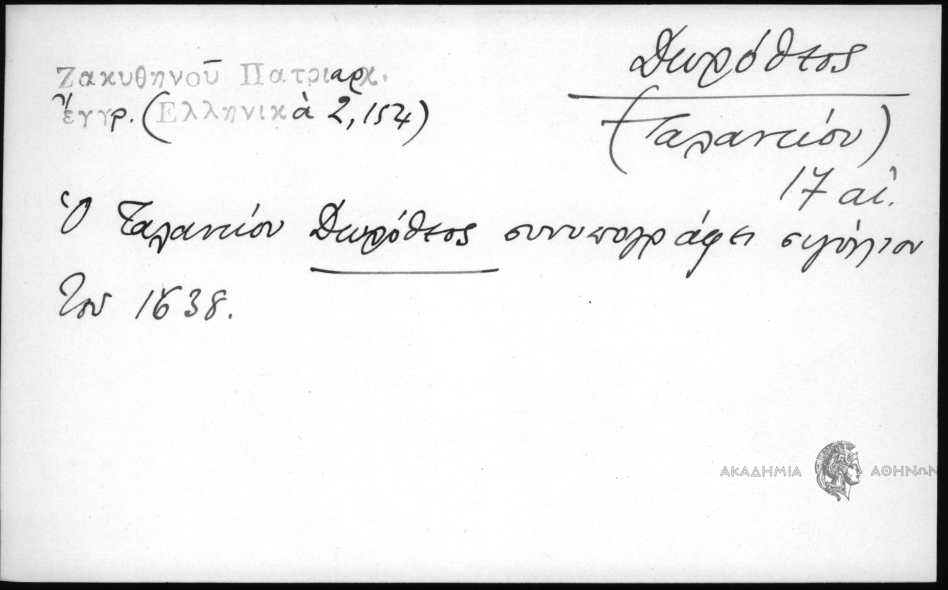 Ζακυθηνοῦ Πατριαρχ.
ἔγγρ. (Ἑλληνικὰ 2, 154)
Δωρόθεος
(Ταλαντίου)
17 αἰ.
Ὁ Ταλαντίου Δωρόθεος συνυπογράφει σιγίλλιον
τοῦ 1638.
ΑΚΑΔΗΜΙΑ ΑΘΗΝΩΝ